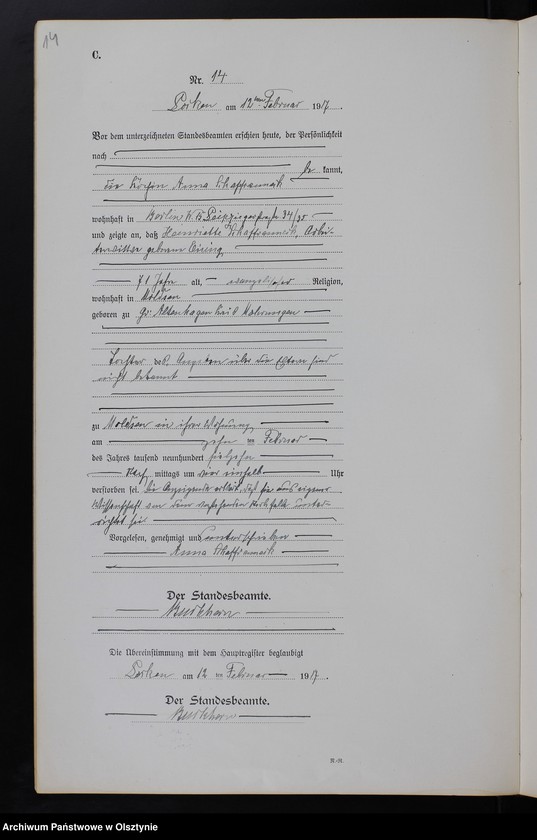 14
C.
Nr. 14
am 12ten Februar 1917.
Vor dem unterzeichneten Standesbeamten erschien heute, der Persönlichkeit
nach
be kannt,
die Anna Schaffsanneck
wohnhaft in Berlin W. 8, Leipzigerstraße 34/35
und zeigte an, daß Henriette Schaffsanneck, Arbei-
terwittwe geborene
71 Jahre alt, evangelischer Religion,
wohnhaft in Moldsen
geboren zu Gr: Altenhagen Kreis Mohrungen
Tochter Angaben über die Eltern sind
nicht bekannt
zu Moldsen in ihrer Wohnung
am zehn ten Februar
des Jahres tausend neunhundert siebzehn
Nach mittags um vier einhalb Uhr
verstorben sei. Die Anzeigende erklärt, daß sie aus eigener
Wissenschaft von dem vorstehenden Sterbefalle unter-
richtet sei
Vorgelesen, genehmigt und unterschrieben
Anna Schaffsanneck
Der Standesbeamte.
Die Übereinstimmung mit dem Hauptregister beglaubigt
am 12 ten Februar 1917.
Der Standesbeamte.
Archiwum Państwowe w Olsztynie